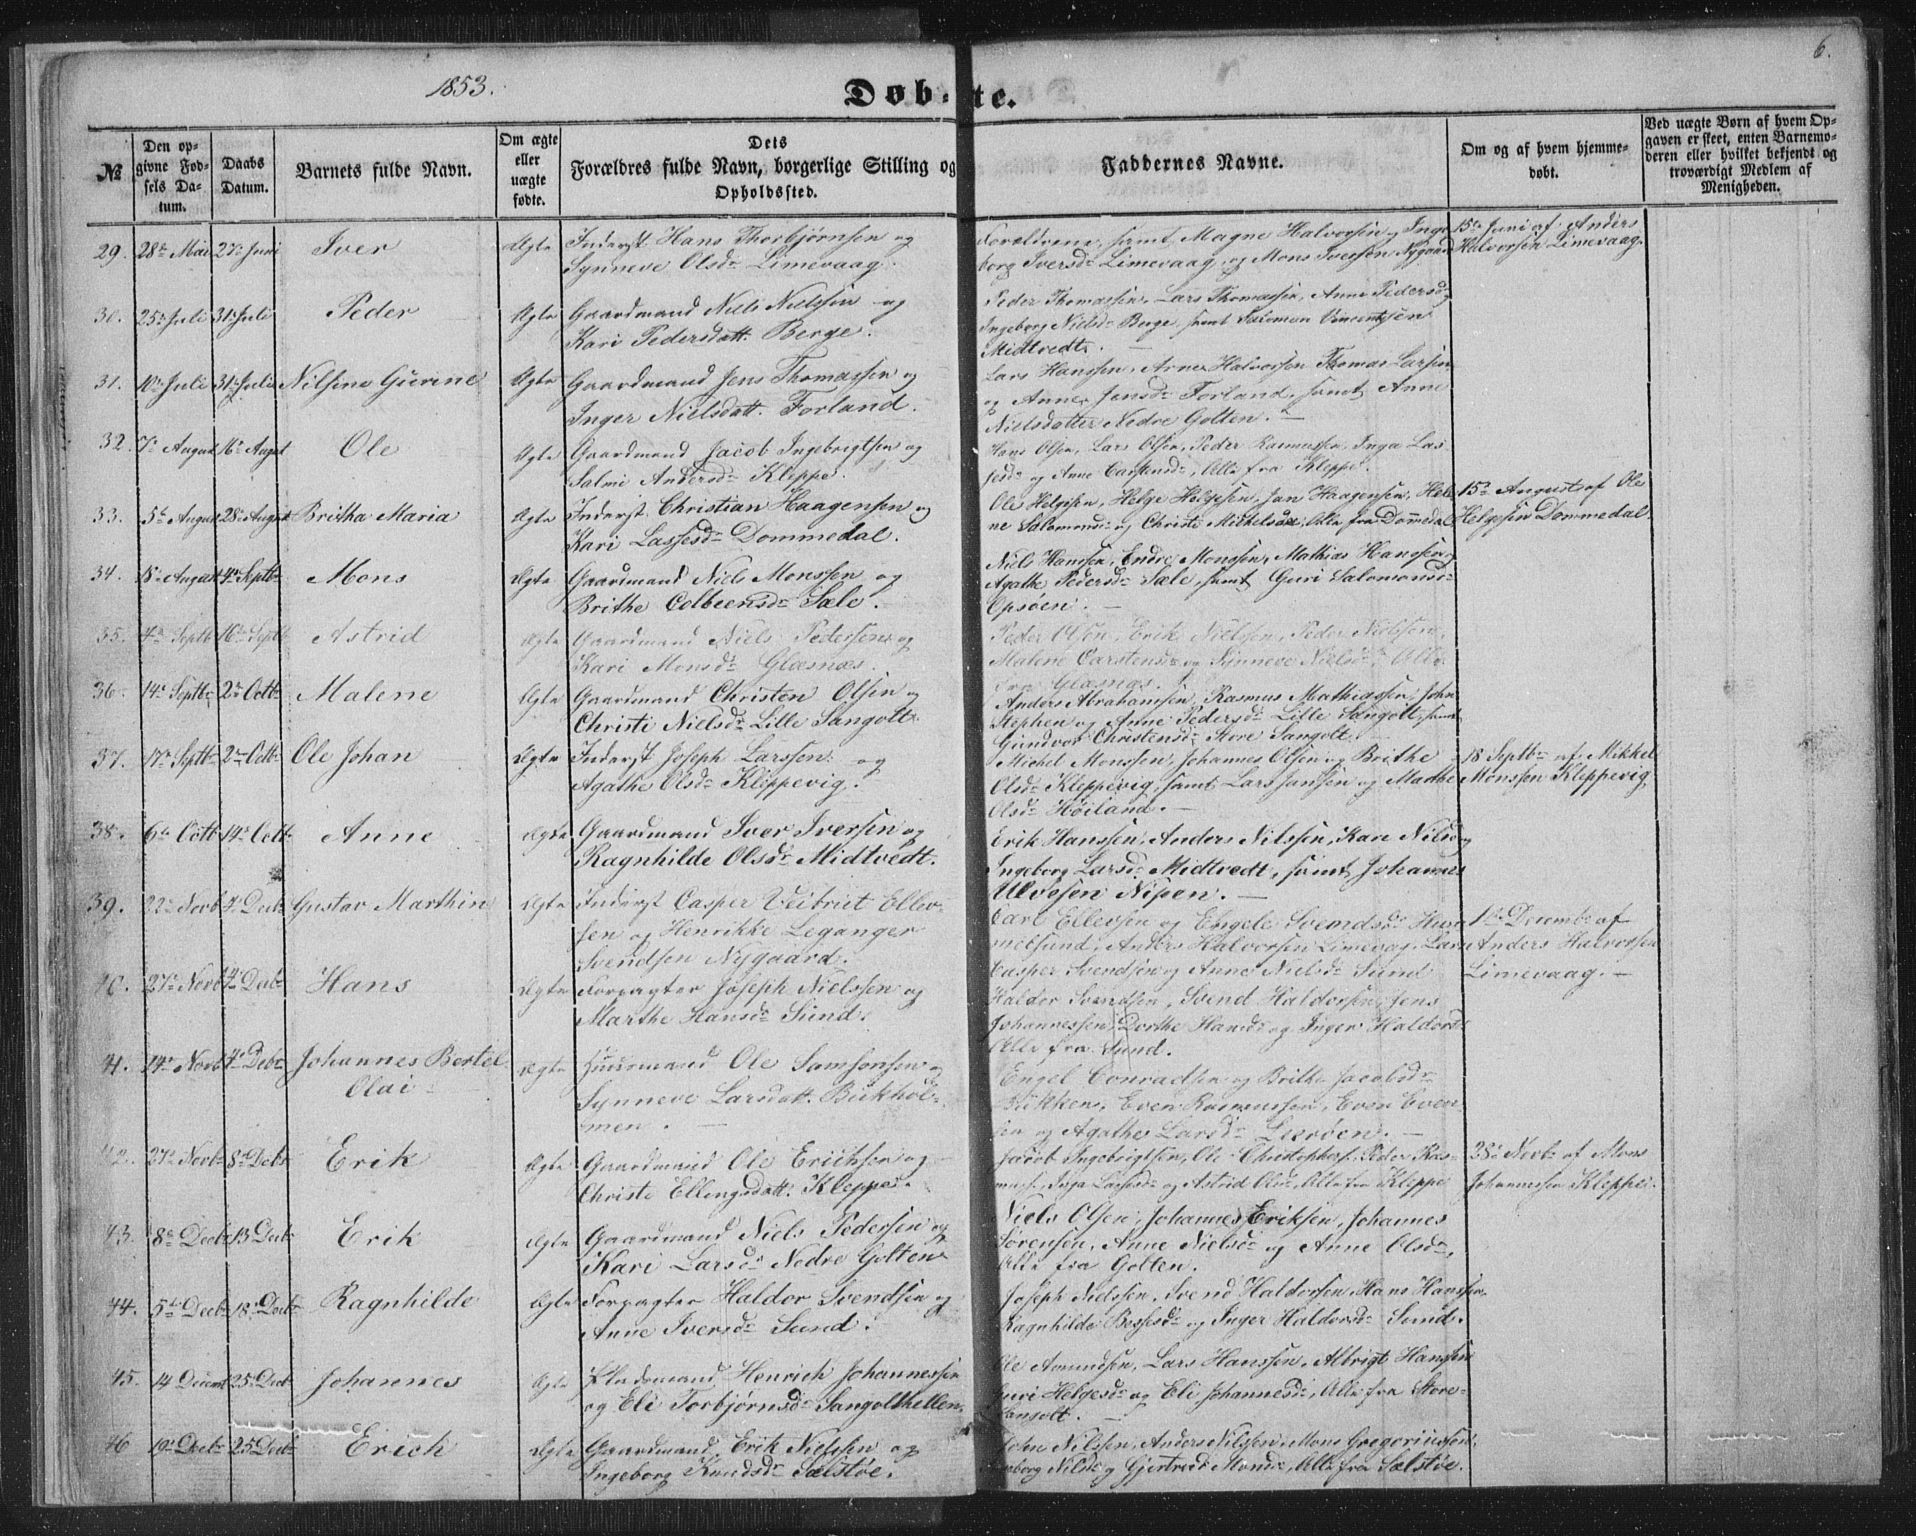 6.
1853.
Døbte.
№
Den opgivne Fødsels Datum.
Daabs Datum.
Barnets fulde Navn.
Om ægte eller uægte fødte.
Dets Forældres fulde Navn, borgerlige Stilling og Opholdssted.
Faddernes Navne.
Om og af hvem hjemmedøbt.
Ved uægte Børn af hvem Opgaven er skeet, enten Barnemoderen eller hvilket bekjendt og troværdigt Medlem af Menigheden.
29. 28de Mai 27de Juni Iver Ægte Inderst Hans Thorbjørnsen og
Synneve Olsdr Limevaag.
Forældrene, samt Magne Halvorsen, Inge-
borg Iversdr Limevaag og Mons Iversen Nygaard
15de Juni af Anders
Halvorsen Limevaag.
30. 25de Juli 31te Juli Peder Ægte Gaardmand Niels Nielssen og
Kari Pedersdatt. Berge.
Peder Thomassen, Lars Thomassen, Anne Pedersdr
Ingeborg Nielsdr Berge, samt Salomon Vincentsen
Midtvedt.
31. 10de Juli 31te Juli Nilsine Gurine Ægte Gaardmand Jens Thomassen og
Inger Nielsdatt. Forland.
Lars Hanssen, Arne Halvorsen Thomas Larsen
og Anne Jensdr Forland, samt Anne
Nielsdatter Nedre Golten.
32. 7de August 16de August Ole Ægte Gaardmand Jacob Ingebrigtsen og
Salmi Andersdr Kleppe.
Hans Olsen, Lars Olsen, Peder Rasmussen, Inga Las-
sesdr og Anne Carstensdr, Alle fra Kleppe.
33. 5te August 28de August Britha Maria Ægte Inderst Christian Haagensen og
Kari Lassesdr Dommedal.
Ole Helgesen, Helge Helgesen, Jan Haagensen, Hele-
ne Salomonsdr og Christi Michelsdr, Alle fra Dommedal
15de August af Ole
Helgesen Dommedal.
34. 18de August 4de Septbr Mons Ægte Gaardmand Niels Monssen og
Brithe Colbeensdr Sæle.
Niels Hanssen, Endre Monssen, Mathias Hanssen
Agathe Pedersdr Sæle, samt Guri Salomonsdr
Opsøen.
35. 4de Septb 16de Septb Astrid Ægte Gaardmand Niels Pedersen og
Kari Monsdr Glæsnæs.
Peder Olsen, Erik Nielsen, Peder Nielsen,
Malene Carstensdr og Synneve Nielsdr, Alle
fra Glæsnæs.
36. 14de Septbr 2den Octbr Malene Ægte Gaardmand Christen Olsen og
Christi Nielsdr Lille Sangolt.
Anders Abrahamsen, Rasmus Mathiassen, John
Stephen og Anne Pedersdr Lille Sangolt, samt
Gundvor Christensdr Store Sangolt.
37. 17de Septbr 2den Octbr Ole Johan Ægte Inderst Joseph Larssen og
Agathe Olsdr Kleppevig.
Michel Monssen, Johannes Olsen og Brithe
Olsdr Kleppevig, samt Lars Jansen og Marthe
Olsdr Høiland.
18 Septbr af Mikkel
Monssen Kleppevig
38. 6te Octb 14de Octb Anne Ægte Gaardmand Iver Iversen og
Ragnhilde Olsdr Midtvedt.
Erik Hanssen, Anders Nilssen, Kari Nilsdr
Ingeborg Larsdr Midtvedt, samt Johannes
Nipen.
39. 22de Novb 4de Decbr Gustav Marthin Ægte Inderst Casper Ellev-
sen og Henrikke Leganger
Svendsen Nygaard.
Carl Ellevsen og Engele Svendsdr
Anders Halvorsen Limevaag, Lars
Casper Svendsen og Anne Nielsdr Sund
1ste Decembr af
Anders Halvorsen
Limevaag.
40. 27de Novb 4de Decbr Hans Ægte Forpagter Joseph Nielssen og
Marthe Hansdr Sund.
Haldor Svendsen, Svend Haldorsen, Jens
Johannessen, Dorthe Hansdr og Inger Haldorsdr
Alle fra Sund.
41. 14de Novb 4de Decbr Johannes Bertel
Olai Ægte Huusmand Ole Samsonsen og
Synneve Larsdatt. Birkhol-
men.
Engel Conradsen og Brithe Jacobsdr
Bukken, Even Rasmussen, Even Even-
sen og Agathe Larsdr Lerøen.
42. 27de Novbr 8de Decbr Erik Ægte Gaardmand Ole Eriksen og
Christi Ellingsdatt. Kleppe.
Jacob Ingebrigtsen, Ole Christophers., Peder Ras-
muss., Inga Lassesdr og Astrid Olsdr, Alle fra Kleppe
28de Novbr af Mons
Johannessen Kleppe.
43. 8de Decbr 13 Decbr Erik Ægte Gaardmand Niels Pedersen og
Kari Larsdr Nedre Golten
Niels Olsen, Johannes Eriksen, Johannes
Sørensen, Anne Nielsdr og Anne Olsdr,
Alle fra Golten.
44. 5te Decbr 18de Decbr Ragnhilde Ægte Forpagter Haldor Svendsen og
Anne Iversdr Sund.
Joseph Nielsen, Svend Haldorsen, Hans Hanssen,
Ragnhilde Bessesdr og Inger Haldorsdr Sund.
45. 14 Decembr 25de Decbr Johannes Ægte Henrich Johannessen
og Eli Torbjørnsdr Sangolthellen.
Ole Amundsen, Lars Hanssen, Albrigt Hanssen
Guri Helgesdr og Eli Johannesdr, Alle fra Store-
Sangolt.
46 19de Decbr 25 Decbr Erich Ægte Gaardmand Erik Nielssen og
Ingeborg Knudsdr Sælstøe.
John Nilssen, Anders Nilssen, Mons Gregoriussen,
Ingeborg Nilsdr og Gjertrud Monsdr, Alle fra Sælstøe.